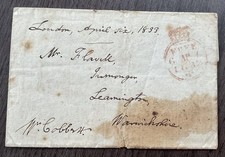 London, April six, 1833
Mr. Flavell,
Iremonger
Leamington
Warwickshire
Wm Cobbett